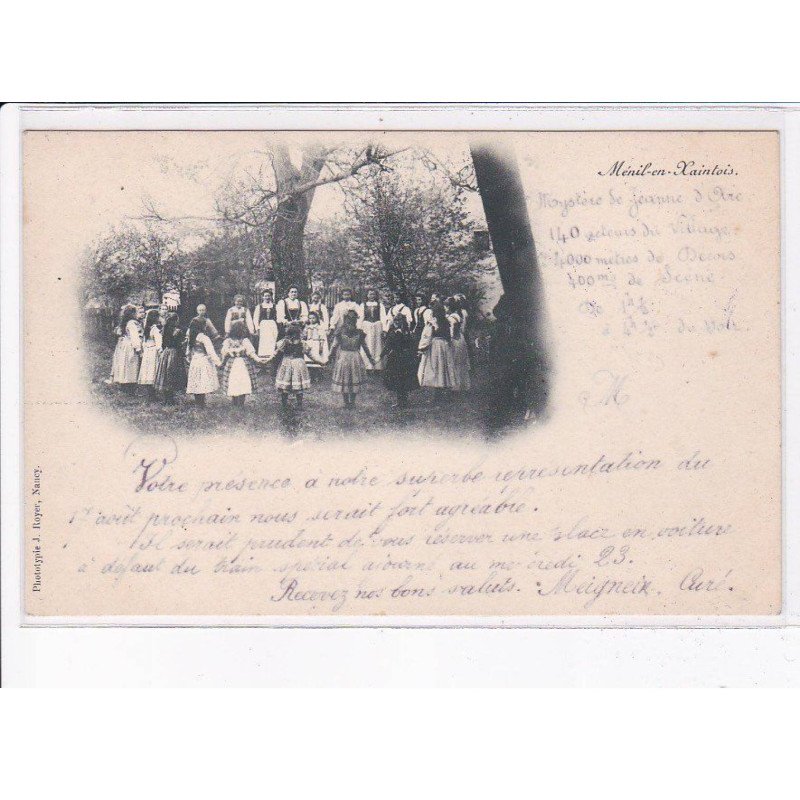 Ménil-en-Xaintois.
Mystère de Jeanne d'Arc
140 acteurs du Village
4000 mètres de Décors
400mq de Scène
De 1h ½
à du soir
M
Votre présence à notre superbe représentation du
1er août prochain nous serait fort agréable.
Il serait prudent de vous réserver une place en voiture
à défaut du train spécial ajourné au mercredi 23.
Recevez nos bons saluts. Curé.
Phototypie J. Royer, Nancy.